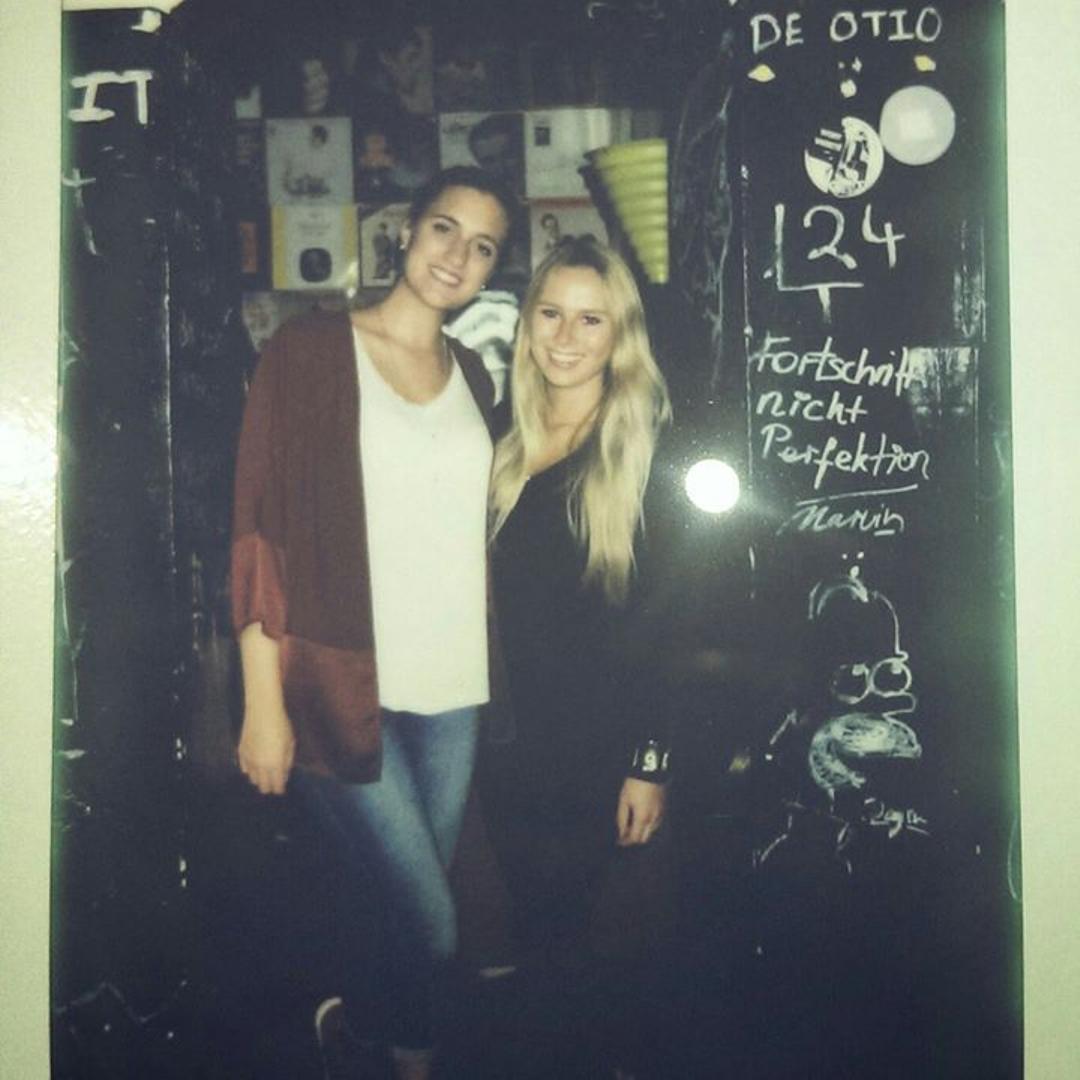 IT
DE OTIO
124
Fortschritt
nicht
Perfektion
Marvin